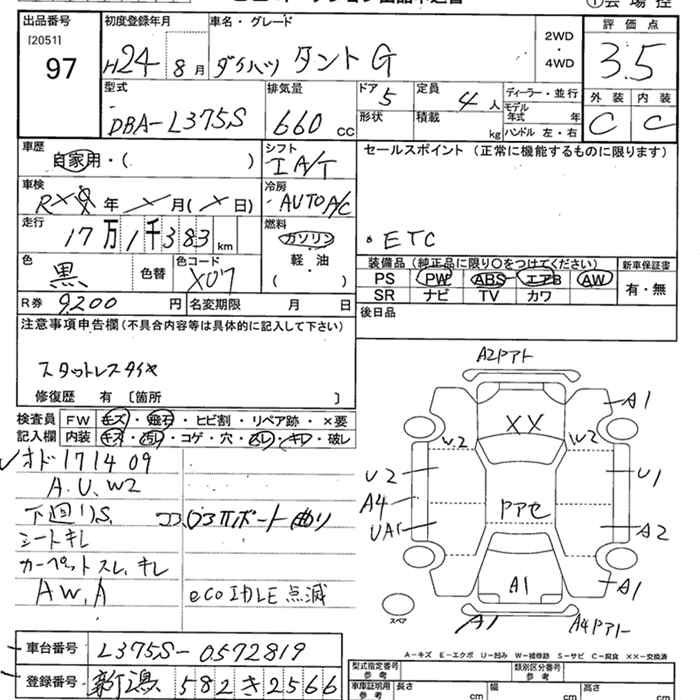 出品番号 初度登録年月 車名・グレード 評価点
[2051]
97 H24年 8月 ダイハツ タント G 2WD・4WD 3.5
型式 排気量 ドア 定員 ディーラー・並行 外装 内装
DBA-L375S 660 cc 5 4人 モデル年式 年 C C
形状 積載 kg ハンドル 左・右
車歴 シフト セールスポイント(正常に機能するものに限ります)
自家用・( ) IA/T
車検 冷房
年 月( 日) AUTO A/C
走行 燃料
17万1千383km ガソリン・ETC
色 色替 色コード 軽油 装備品(純正品に限り○をつけてください) 新車保証書
黒 X07 ( ) PS PW ABS エアB AW 有・無
SR ナビ TV カワ
R券 9,200円 名変期限 月 日 後日品
注意事項申告欄(不具合内容等は具体的に記入して下さい)
スタットレスタイヤ
修復歴 有〔箇所 〕
検査員 FW キズ・飛石・ヒビ割・リペア跡・×要
記入欄 内装 キズ・汚レ・コゲ・穴・スレ・キレ・破レ
オド171409
A.U.W2
下回りS コラムポート曲り
シートキレ
カーペットスレ、キレ
AW.A eco IDLE点滅
車台番号 L375S-0572819
登録番号 新潟 582 き 2566
A2Pアト
A1
XX
W2 W2
U2 U1
A4
UA1 Pアセ A2
A1 A1
スペア A1 A4Pアト
A-キズ E-エクボ U-凹み W-補修跡 S-サビ C-腐食 XX-交換済
型式指定番号 参考 類別区分番号 参考
車庫証明用 参考 長さ cm 幅 cm 高さ cm